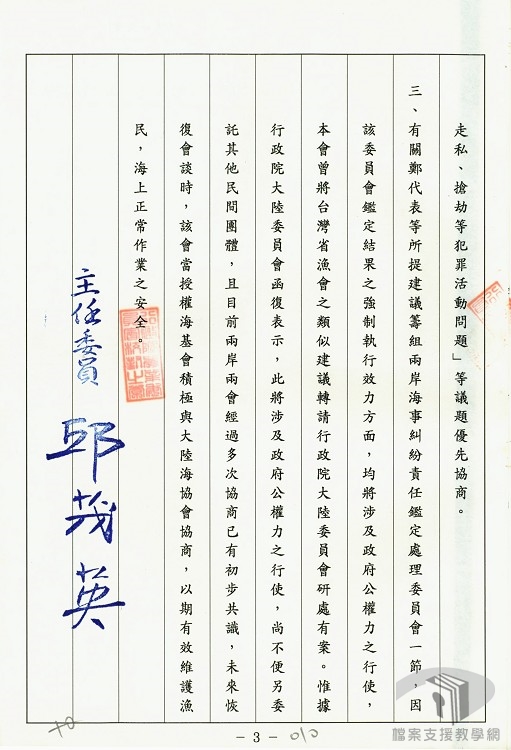 走私、搶劫等犯罪活動問題」等議題優先協商。
三、有關鄭代表等所提建議籌組兩岸海事糾紛責任鑑定處理委員會一節，因
該委員會鑑定結果之強制執行效力方面，均將涉及政府公權力之行使，
本會曾將台灣省漁會之類似建議轉請行政院大陸委員會研處有案。惟據
行政院大陸委員會函復表示，此將涉及政府公權力之行使，尚不便另委
託其他民間團體，且目前兩岸兩會經過多次協商已有初步共識，未來恢
復會談時，該會當授權海基會積極與大陸海協會協商，以期有效維護漁
民，海上正常作業之安全。
主任委員 邱茂英
- 3 -
010
檔案支援教學網